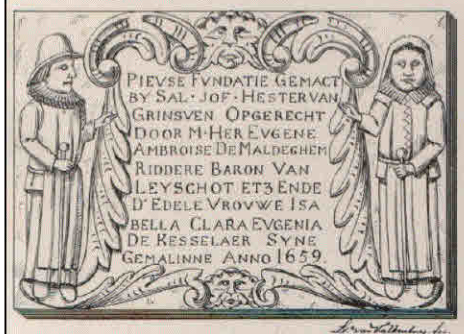 PIEVSE FVNDATIE GEMACT
BY SAL · JOF · HESTER VAN
GRINSVEN OPGERECHT
DOOR M · HER EVGENE
AMBROISE DE MALDEGHEM
RIDDERE BARON VAN
LEYSCHOT ETƷ ENDE
D' EDELE VROVWE ISA
BELLA CLARA EVGENIA
DE KESSELAER SYNE
GEMALINNE ANNO 1659.